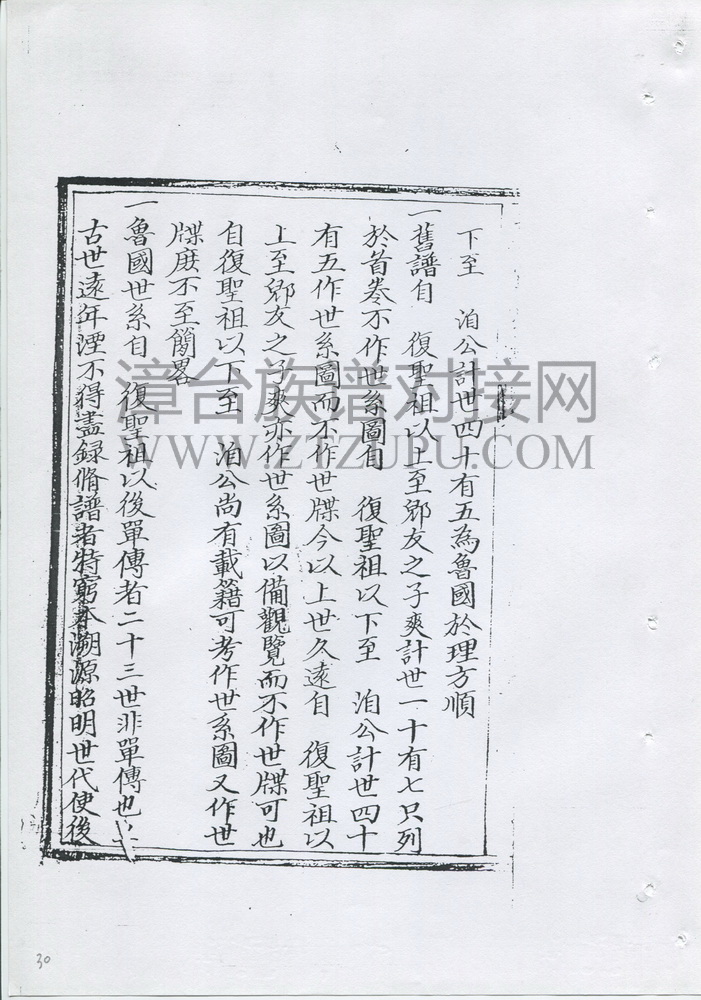 下至　洎公計世四十有五為魯國於理方順
一舊譜自　復聖祖以上至郳友之子爽計世一十有七只列
於首卷不作世系圖自　復聖祖以下至　洎公計世四十
有五作世系圖而不作世牒今以上世久遠自　復聖祖以
上至郳友之子爽亦作世系圖以備觀覽而不作世牒可也
自復聖祖以下至　洎公尚有載籍可考作世系圖又作世
牒庶不至簡畧
一魯國世系自　復聖祖以後單傳者二十三世非單傳也
古世遠年湮不得盡録脩譜者特窮本溯源昭明世代使後
漳台族谱对接网
WWW.ZTZUPU.COM
30